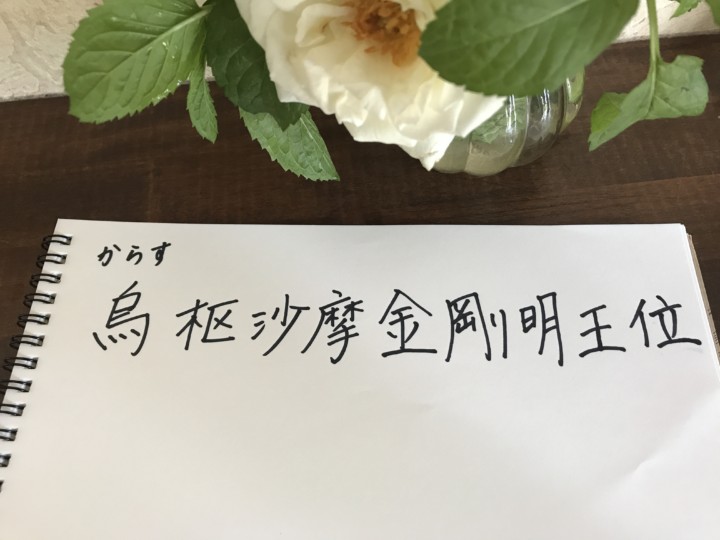 からす
烏枢沙摩金剛明王位